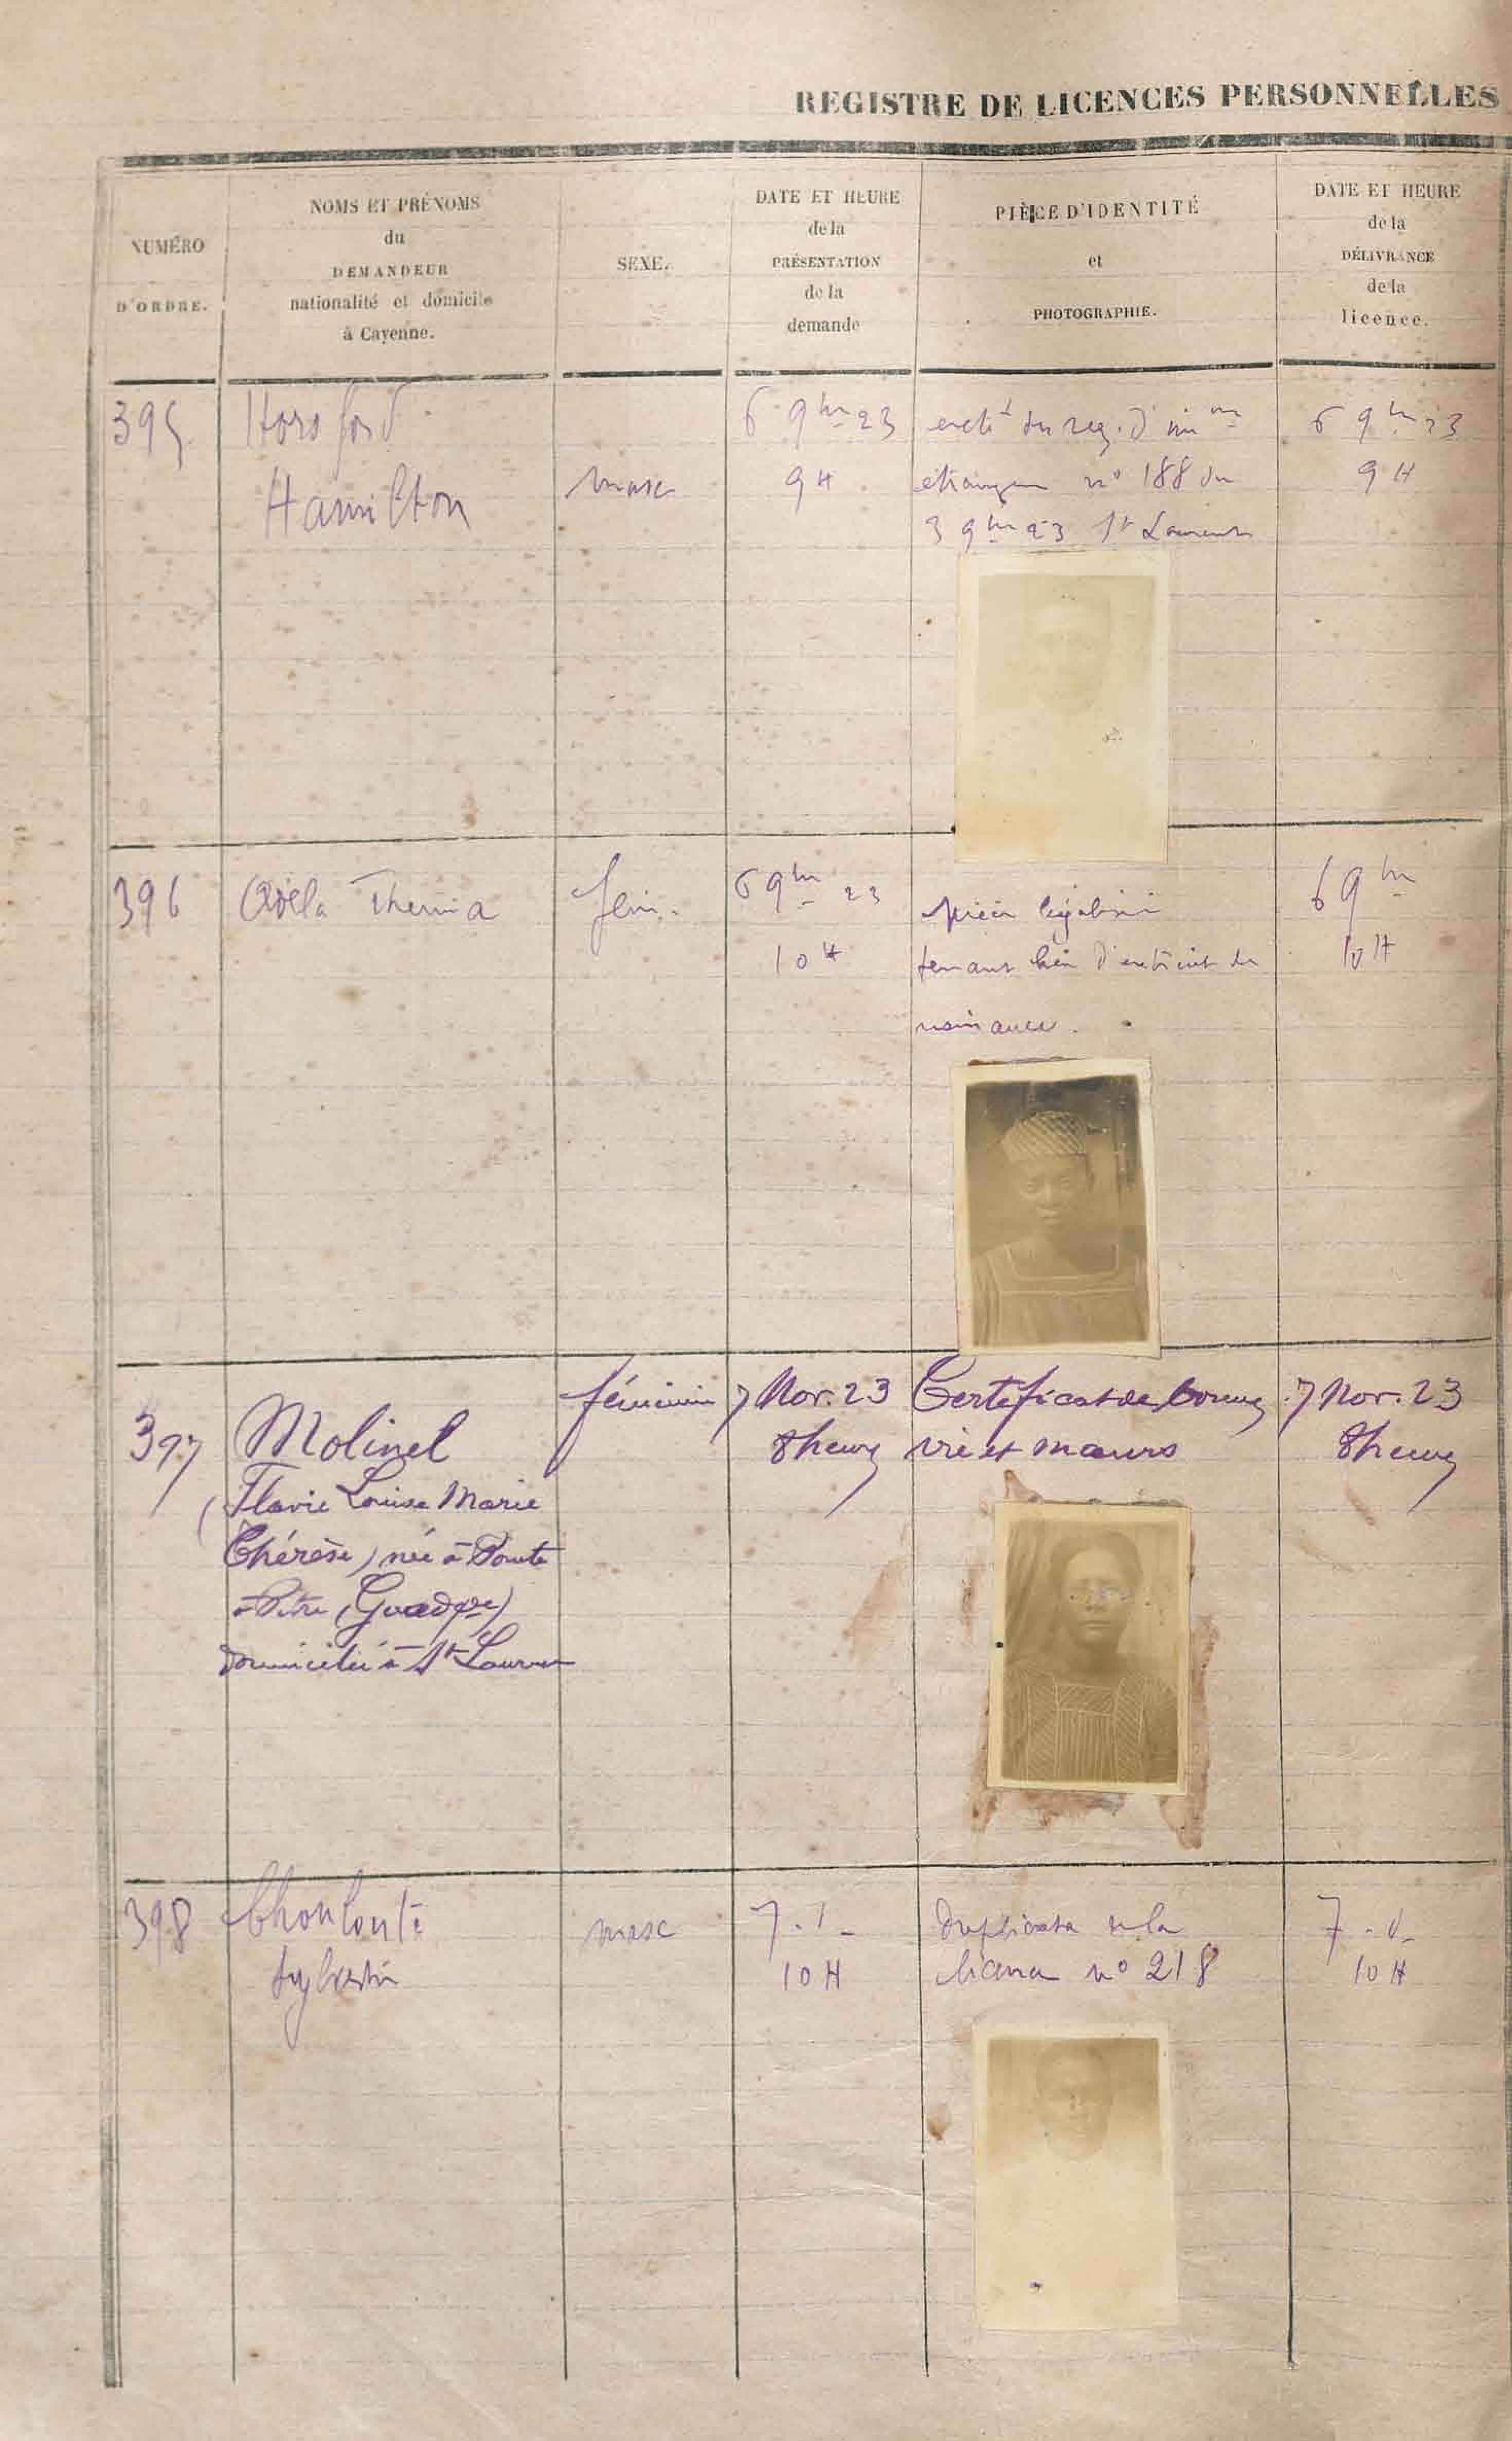 REGISTRE DE LICENCES PERSONNELLES
NUMÉRO
D'ORDRE.
NOMS ET PRÉNOMS
du
DEMANDEUR
nationalité et domicile
à Cayenne.
SEXE.
DATE ET HEURE
de la
PRÉSENTATION
de la
demande
PIÈCE D'IDENTITÉ
et
PHOTOGRAPHIE.
DATE ET HEURE
de la
DÉLIVRANCE
de la
licence.
395
Horsford
Hamilton
masc
6 9bre 23
9 H
du reg. d'
n° 188 du
3 9bre 23 St Laurent
6 9bre 23
9 H
396
Adela
fem.
6 9bre 23
10 H
pièce légalisée
tenant lieu d'extrait de
naissance.
6 9bre
10 H
397
Molinel
(Flavie Louise Marie
Thérèse) née à Pointe
à Pitre (Guadpe)
domiciliée à St Laurent
féminin
7 Nov. 23
8 heures
Certificat de bonne
vie et mœurs
7 Nov. 23
8 heures
398
Chonlonté
Sylvestre
masc
7 - d -
10 H
duplicata de la
licence n° 218
7 - d -
10 H